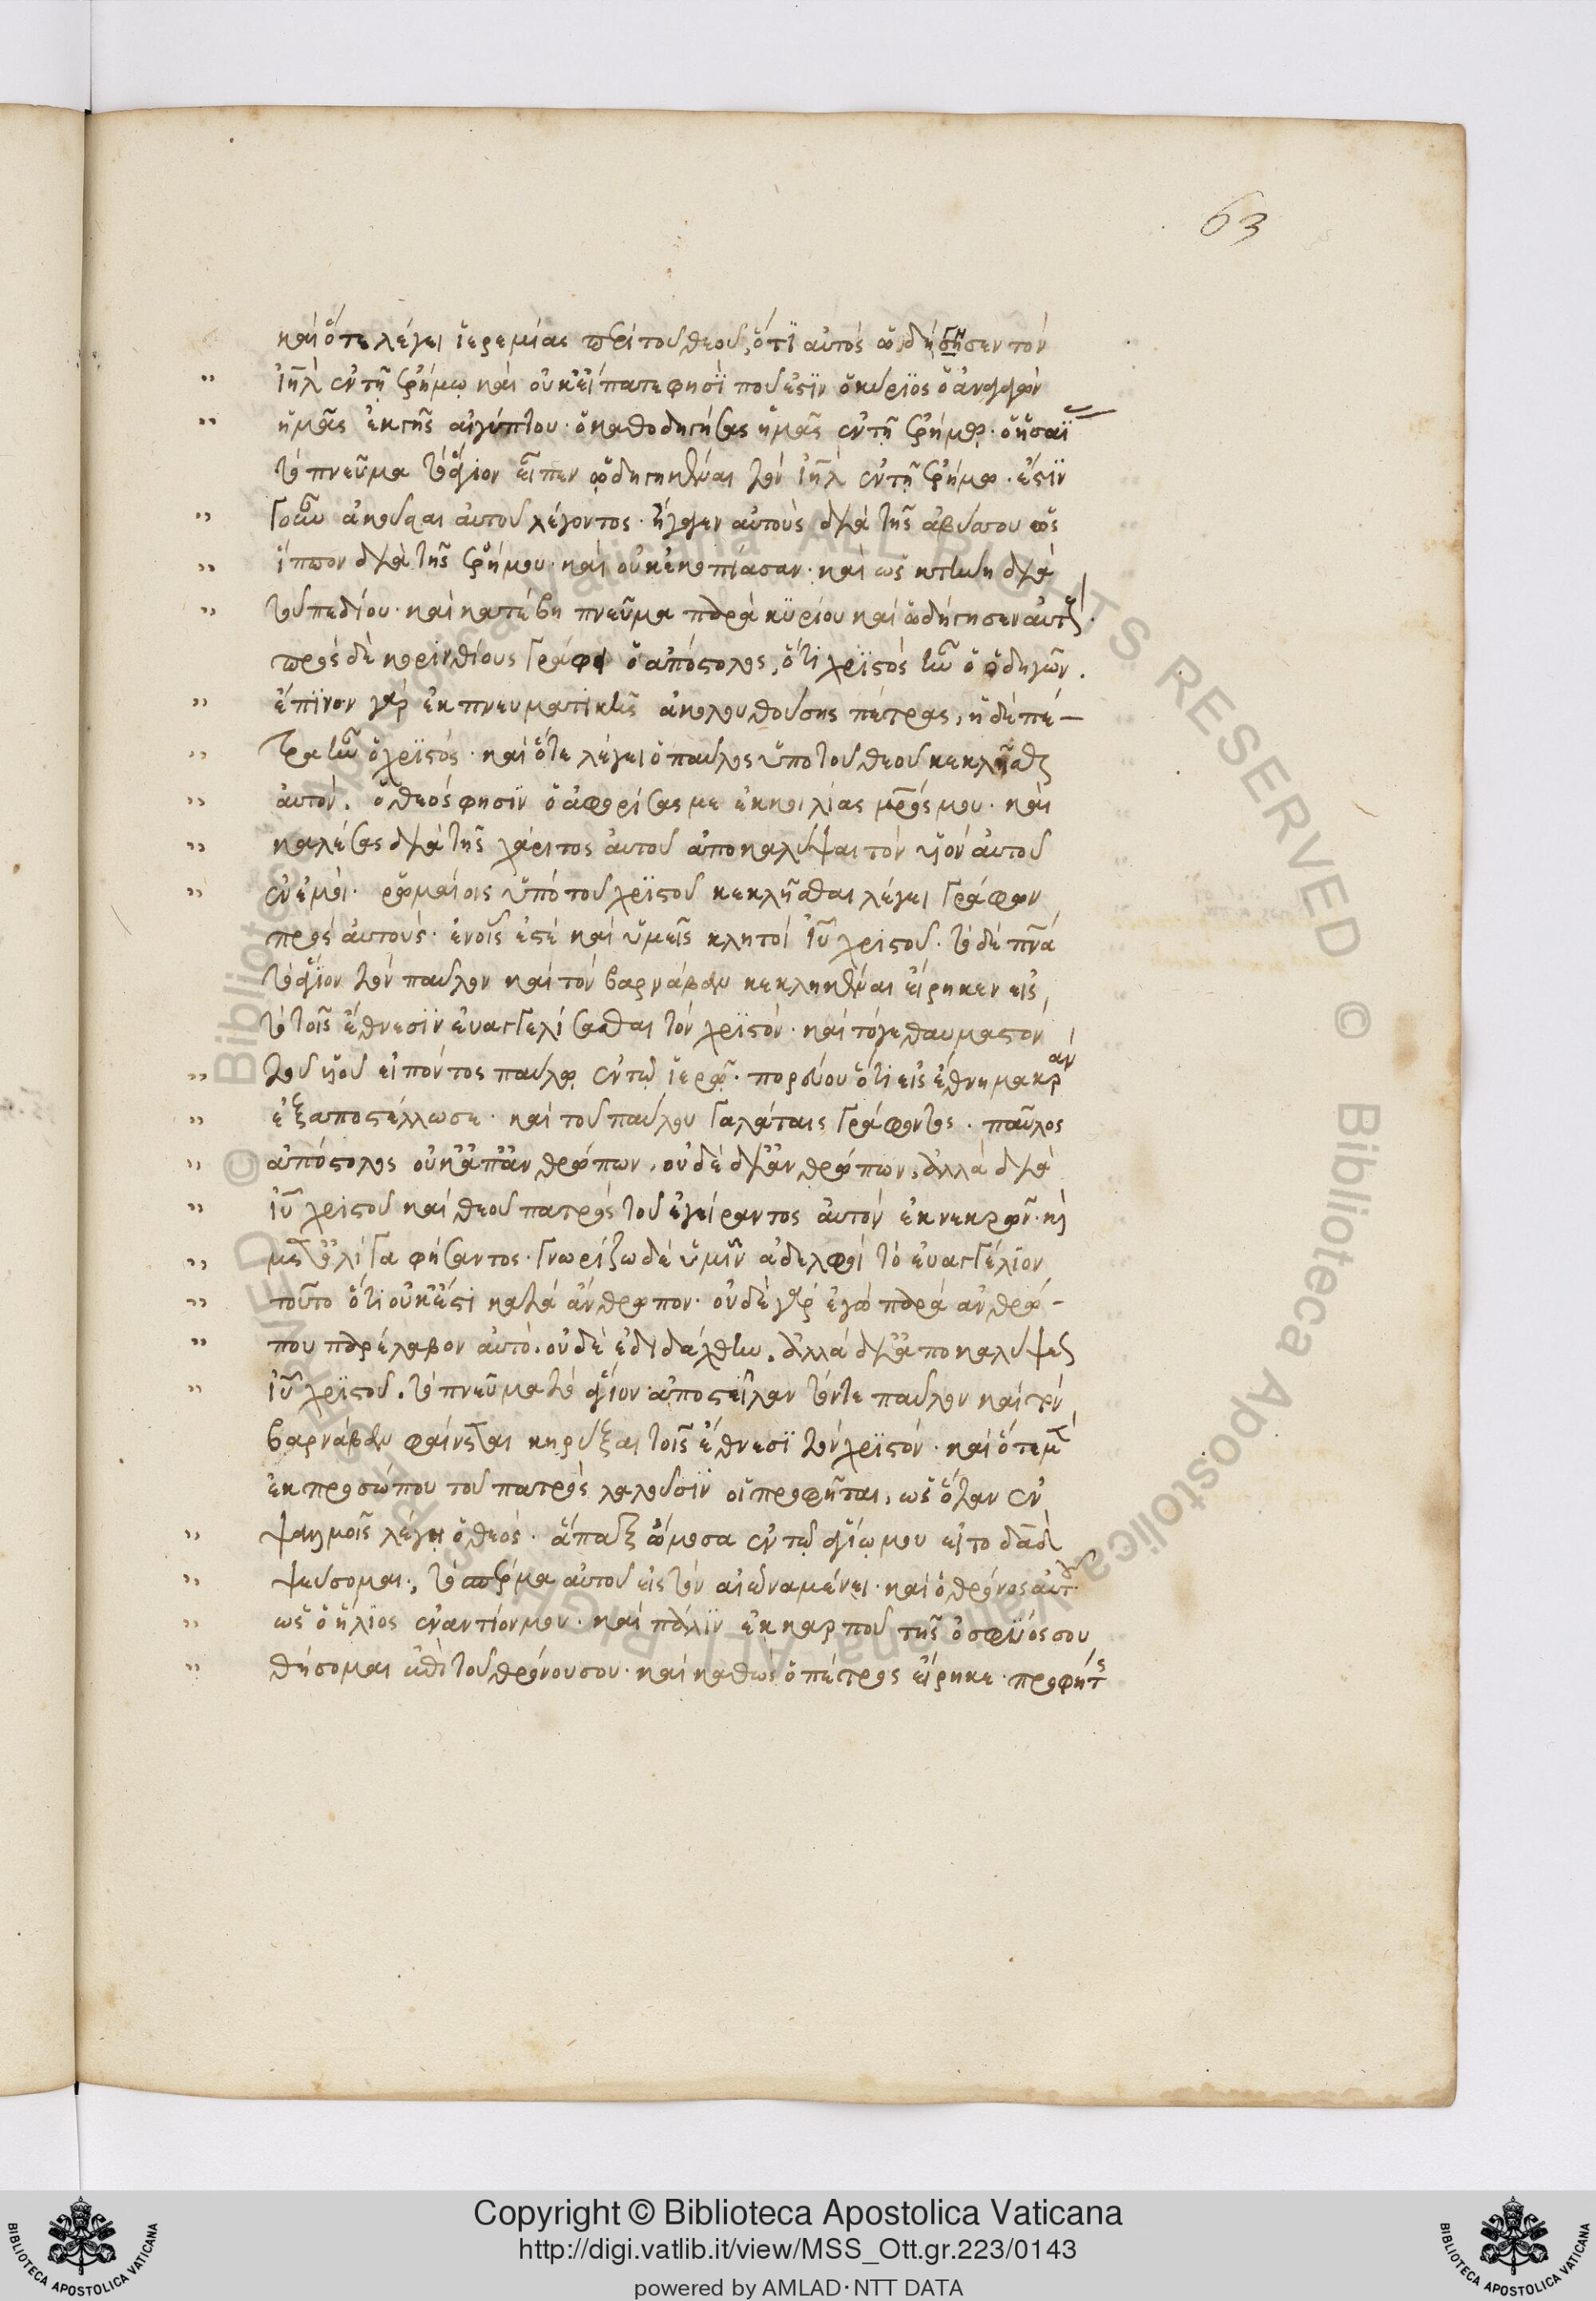 63
καὶ ὅτε λέγει ἱερεμίας περὶ τοῦ θεοῦ, ὅτι αὐτὸς ὡδήγησεν τὸν
ἰηλ ἐν τῇ ἐρήμῳ καὶ οὐκ εἴπατε φησὶ ποῦ ἐστιν ὁ κύριος ὁ ἀναγαγὼν
ἡμᾶς ἐκ τῆς αἰγύπτου· ὁ καθοδηγήσας ἡμᾶς ἐν τῇ ἐρήμῳ·
τὸ πνεῦμα τὸ ἅγιον εἶπεν ὡδηγηκέναι τὸν ἰηλ ἐν τῇ ἐρήμῳ· ἔστιν
γοῦν ἀκοῦσαι αὐτοῦ λέγοντος· ἤγαγεν αὐτοὺς διὰ τῆς ἀβύσσου ὡς
ἵππον διὰ τῆς ἐρήμου· καὶ οὐκ ἐκοπίασαν· καὶ ὡς κτήνη διὰ
τοῦ πεδίου· καὶ κατέβη πνεῦμα παρὰ κυρίου καὶ ὡδήγησεν αὐτούς·
πρὸς δὲ κορινθίους γράφει ὁ ἀπόστολος, ὅτι χριστὸς ἦν ὁ ὁδηγῶν.
ἔπινον γὰρ ἐκ πνευματικῆς ἀκολουθούσης πέτρας, ἡ δὲ πέ-
τρα ἦν ὁ χριστός· καὶ ὅτε λέγει ὁ παῦλος ὑπὸ τοῦ θεοῦ κεκλῆσθαι
αὐτόν. ὁ θεός φησιν ὁ ἀφορίσας με ἐκ κοιλίας μρός μου· καὶ
καλέσας διὰ τῆς χάριτος αὐτοῦ ἀποκαλύψαι τὸν υἱὸν αὐτοῦ
ἐν ἐμοί· ῥωμαίοις ὑπὸ τοῦ χριστοῦ κεκλῆσθαι λέγει γράφων
πρὸς αὐτούς· ἐν οἷς ἐστὲ καὶ ὑμεῖς κλητοὶ ἰυ χριστοῦ. τὸ δὲ πνα
τὸ ἅγιον τὸν παῦλον καὶ τὸν βαρνάβαν κεκληκέναι εἴρηκεν εἰς
τὸ τοῖς ἔθνεσιν εὐαγγελίσασθαι τὸν χριστόν· καὶ τό γε θαυμαστὸν
τοῦ υἱοῦ εἰπόντος παύλῳ ἐν τῷ ἱερῷ· πορεύου ὅτι εἰς ἔθνη μακρὰν
ἐξαποστέλλω σε· καὶ τοῦ παύλου γαλάταις γράφοντος· παῦλος
ἀπόστολος οὐκ ἀπ' ἀνθρώπων, οὐδὲ δι' ἀνθρώπων, ἀλλὰ διὰ
ἰυ χριστοῦ καὶ θεοῦ πατρὸς τοῦ ἐγείραντος αὐτὸν ἐκ νεκρῶν· καὶ
μετ' ὀλίγα φήσαντος· γνωρίζω δὲ ὑμῖν ἀδελφοὶ τὸ εὐαγγέλιον
τοῦτο ὅτι οὐκ ἔστι κατὰ ἄνθρωπον· οὐδὲ γὰρ ἐγὼ παρὰ ἀνθρώ-
που παρέλαβον αὐτὸ, οὐδὲ ἐδιδάχθην, ἀλλὰ δι' ἀποκαλύψεως
ἰυ χριστοῦ. τὸ πνεῦμα τὸ ἅγιον ἀποστεῖλαν τόν τε παῦλον καὶ τὸν
βαρνάβαν φαίνεται κηρύξαι τοῖς ἔθνεσι τὸν χριστόν· καὶ ὅτε μὲν
ἐκ προσώπου τοῦ πατρὸς λαλοῦσιν οἱ προφῆται, ὡς ὅταν ἐν
ψαλμοῖς λέγῃ ὁ θεός· ἅπαξ ὤμοσα ἐν τῷ ἁγίῳ μου εἰ τῷ δαδ
ψεύσομαι, τὸ σπέρμα αὐτοῦ εἰς τὸν αἰῶνα μένει· καὶ ὁ θρόνος αὐτοῦ
ὡς ὁ ἥλιος ἐναντίον μου· καὶ πάλιν ἐκ καρποῦ τῆς ὀσφύος σου
θήσομαι ἐπὶ τοῦ θρόνου σου· καὶ καθὼς ὁ πέτρος εἴρηκε· προφήτης
© Biblioteca Apostolica Vaticana ALL RIGHTS RESERVED
Copyright © Biblioteca Apostolica Vaticana
http://digi.vatlib.it/view/MSS_Ott.gr.223/0143
powered by AMLAD·NTT DATA
BIBLIOTECA APOSTOLICA VATICANA
BIBLIOTECA APOSTOLICA VATICANA